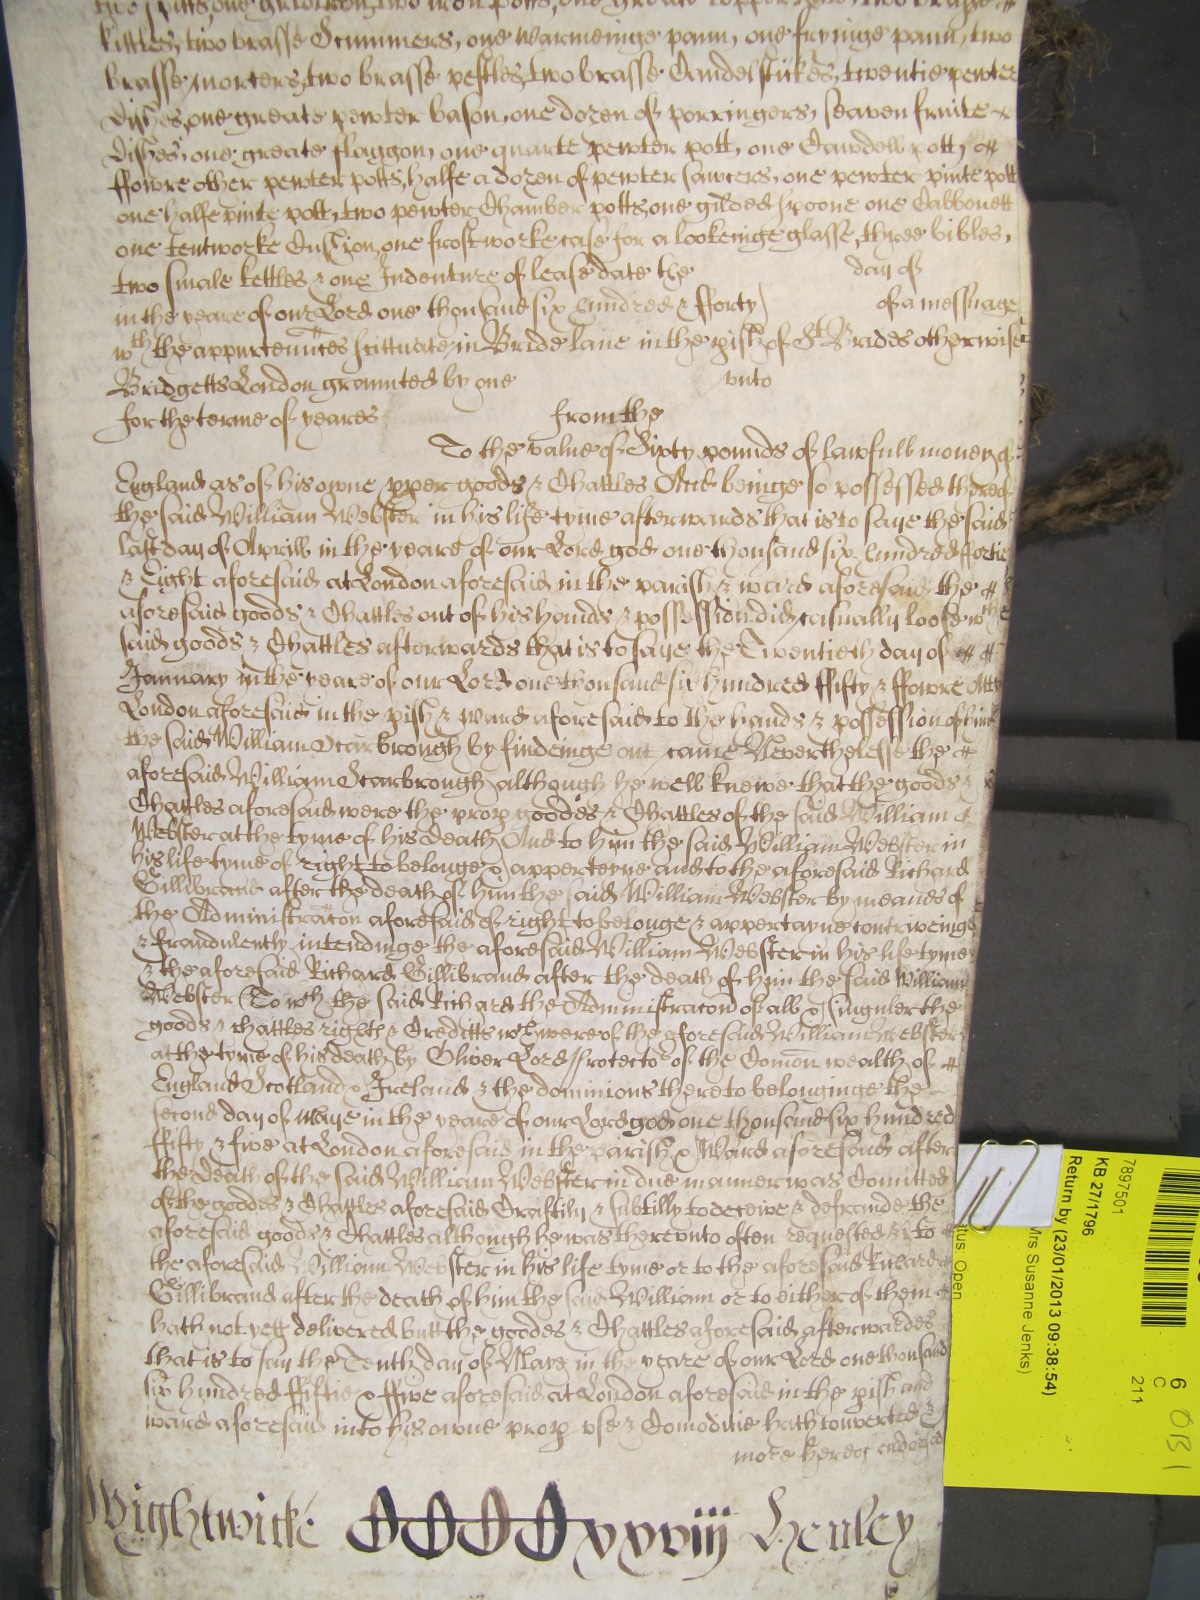 two spitts, one gridiron, two iron potts, one greate copper two brasse
kittles, two brasse Scummers, one warmeinge pann, one fryinge pann, two
brasse morters, two brasse pestles, two brasse Candelstickes, twentie pewter
Dishes, one greate pewter bason, one dozen of porringers, seaven fruite
Dishes, one greate flaggon, one quarte pewter pott, one Cawdell pott,
ffowre other pewter potts, halfe a dozen of pewter sawcers, one pewter pinte pott
one halfe pinte pott, two pewter Chamber potts, one gilded spoone one Cabbonett
one tentworke Cushion, one frostworke case for a lookeinge glasse, three bibles,
two smale kettles & one Indenture of lease date the day of
in the yeare of our Lord one thousand six hundred & fforty of a messuage
wth the appurtennces scittuate in Bride lane in the pish of St Brides otherwise
Bridgetts London graunted by one vnto
for the terme of yeares from the
To the value of Sixty pounds of lawfull money of
England as of his owne pper goods & Chattles And beinge so possessed thereof
the said William Webster in his life tyme afterwards that is to saye the said
last day of Aprill in the yeare of our Lord god one thousand six hundred ffortie
& Eight aforesaid at London aforesaid in the parish & ward aforesaid the
aforesaid goods & Chattles out of his hands & possession did casually loose wch
said goods & Chattles afterwards that is to saye the Twentieth day of
January in the yeare of our Lord one thousand six hundred ffifty & ffowre Att
London aforesaid in the pish & ward aforesaid to the hands & possession of him
the said William Scarbrough by findeinge out came Neverthelesse the
aforesaid William Scarbrough although he well knewe that the goods &
Chattles aforesaid were the prop goodes & Chattles of the said William
Webster at the tyme of his death And to him the said William Webster in
his life tyme of right to belonge & apperteyne and to the aforesaid Richard
Gillibrand after the death of him the said William Webster by meanes of
the Administracon aforesaid of right to belonge & appertayne contriveinge
& fraudulently intendinge the aforesaid William Webster in his life tyme
& the aforesaid Richard Gillibrand after the death of him the said William
Webster (To wch the said Richard the Administracon of all & singuler the
goods & chattles rights & Creditts wch were of the aforesaid William Webster
at the tyme of his death by Oliver Lord Protector of the Comon wealth of
England Scotland & Ireland & the dominions thereto belonginge the
second day of Maye in the yeare of our Lord god one thousand six hundred
ffifty & five at London aforesaid in the parish & Ward aforesaid after
the death of the said William Webster in due manner was Comitted
of the goodes & Chattles aforesaid Craftily & subtilly to deceive & defraude the
aforesaid goods & Chattles although he was therevnto often requested to
the aforesaid William Webster in his life tyme or to the aforesaid Richard
Gillibrand after the death of him the said William or to either of them
hath not yett delivered butt the goodes & Chattles aforesaid afterwardes
that is to say the Tenth day of Maye in the yeare of our Lord one thousand
six hundred ffiftie & ffive aforesaid at London aforesaid in the pish and
ward aforesaid into his owne prop vse & Comoditie hath converted &
more hereof endorsed
Wightwicke CCCCxxviij Henley
7897501
KB 27/1796
Return by (23/01/2013 09:38:54)
Mrs Susanne Jenks)
atus: Open
6
C
211
OB1